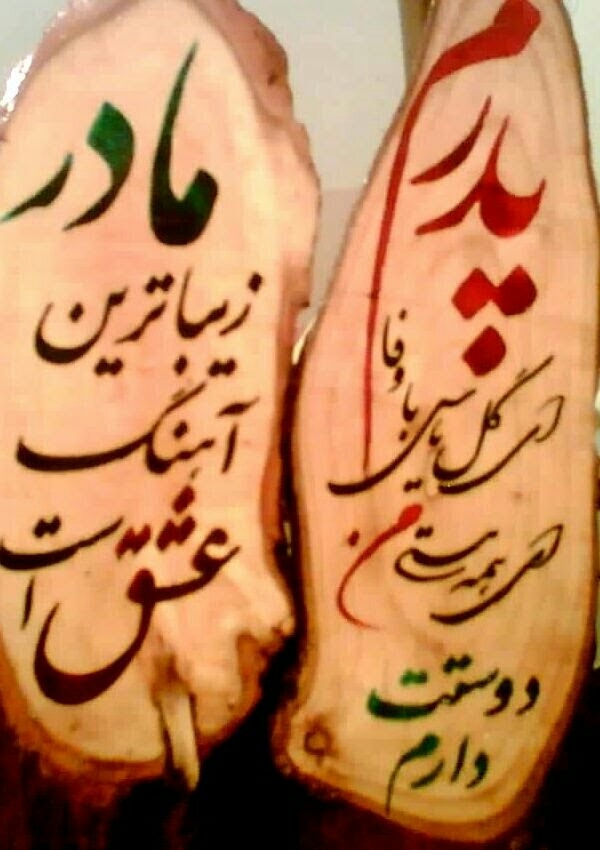 پدرم
ای گل یاس باوفا
ای همه هستی من
دوستت
دارم
مادر
زیباترین
آهنگ
عشق است